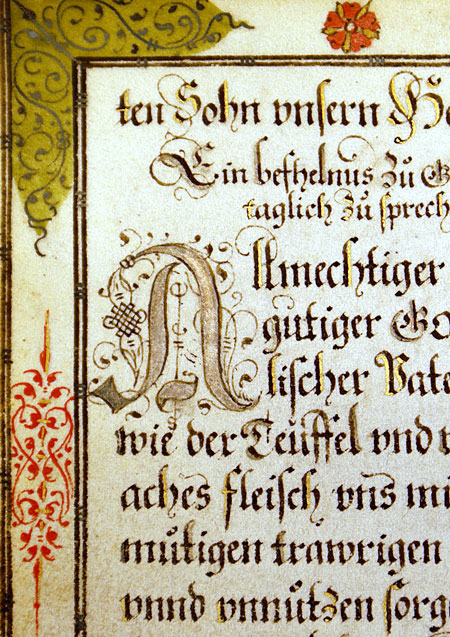 ten Sohn vnsern
Ein befhelnus zů
taglich zů sprech
Allmechtiger
gůtiger Go
lischer Vate
wie der Teůffel vnd
aches fleisch vns mi
můtigen trawrigen
vnnd vnnůtzen sorge